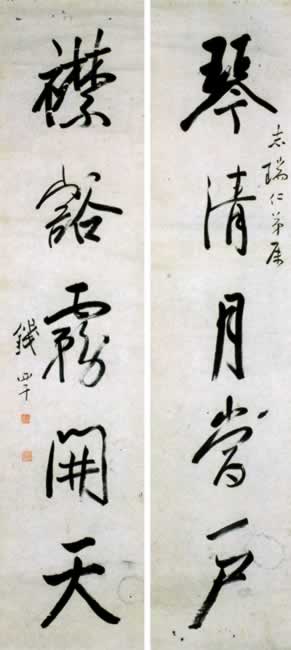 琴清月當户
志瑞仁弟属
襟豁霧開天
錢